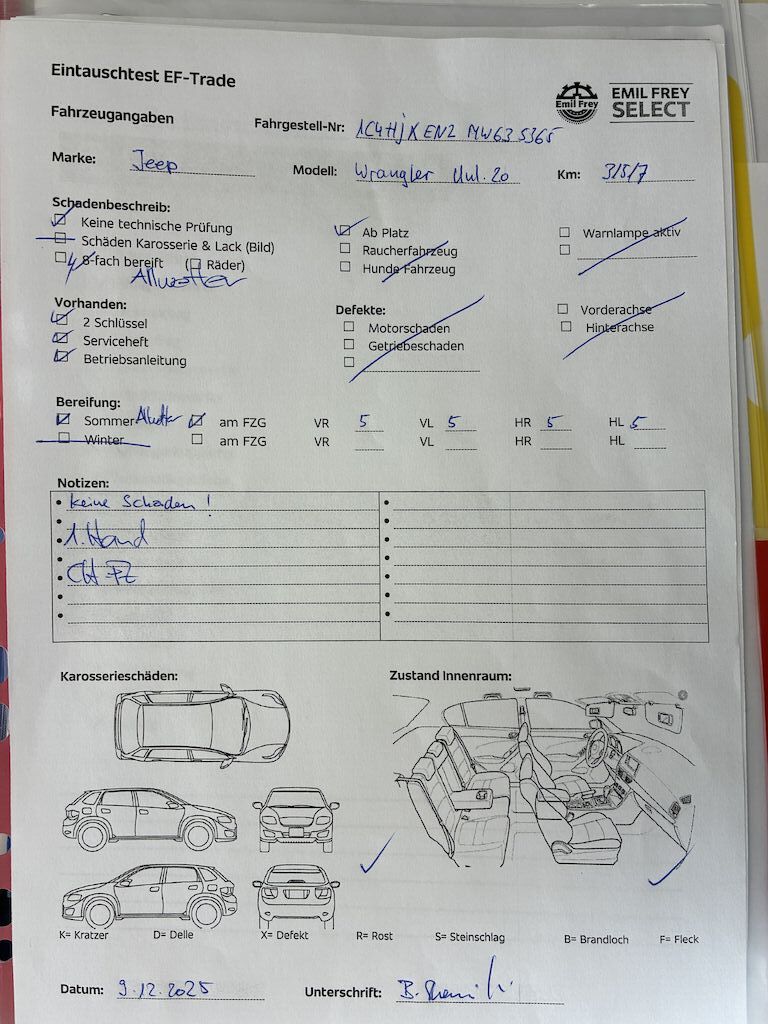 Eintauschtest EF-Trade
Emil Frey
EMIL FREY
SELECT
Fahrzeugangaben
Fahrgestell-Nr: 1C4HjXEN2 MW635365
Marke: Jeep
Modell: Wrangler Unl. 20
Km: 31517
Schadenbeschreib:
Keine technische Prüfung
Ab Platz
Warnlampe aktiv
Schäden Karosserie & Lack (Bild)
Raucherfahrzeug
4 8-fach bereift ( Räder)
Hunde Fahrzeug
Allwetter
Vorhanden:
Defekte:
Vorderachse
2 Schlüssel
Motorschaden
Hinterachse
Serviceheft
Getriebeschaden
Betriebsanleitung
Bereifung:
Sommer Allwetter am FZG VR 5 VL 5 HR 5 HL 5
Winter am FZG VR VL HR HL
Notizen:
• keine Schäden !
• 1. Hand
• CH FZ
Karosserieschäden:
Zustand Innenraum:
K= Kratzer D= Delle X= Defekt R= Rost S= Steinschlag B= Brandloch F= Fleck
Datum: 9.12.2025
Unterschrift: B.